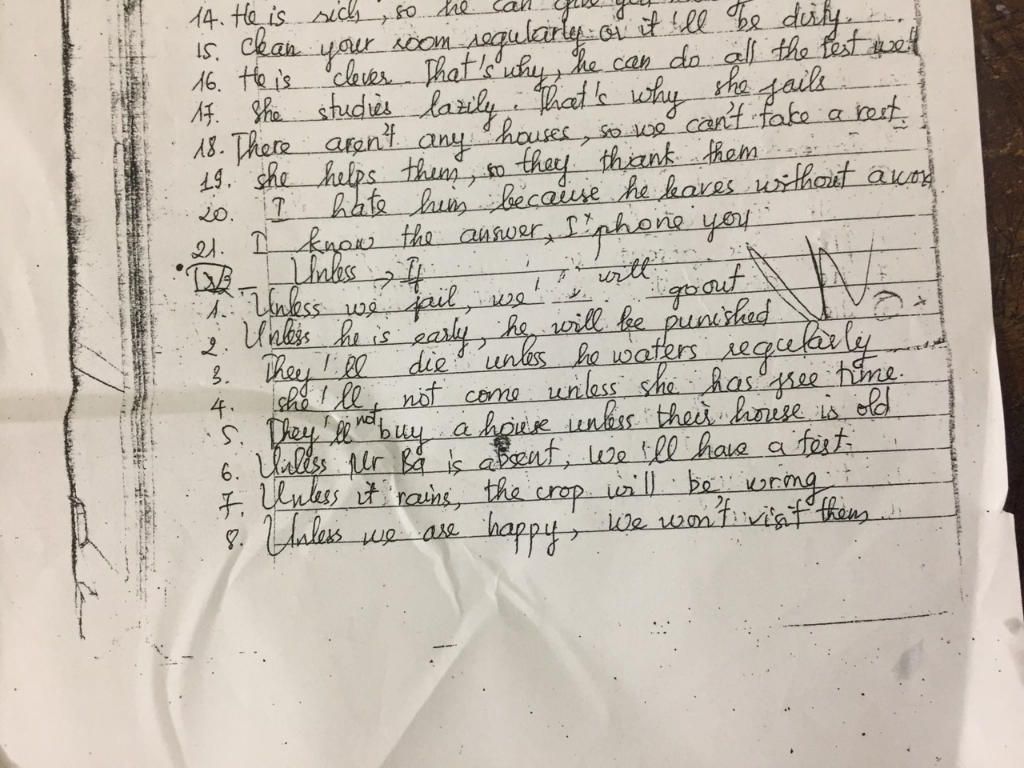 14. He is rich, so he can give you
15. Clean your room regularly or it'll be dirty.
16. He is clever. That's why, he can do all the test well
17. She studies lazily. That's why she fails
18. There aren't any houses, so we can't take a rest.
19. She helps them, so they thank them
20. I hate him because he leaves without a word
21. I know the answer, I phone you
Unless → If
1. Unless we fail, we'll go out
2. Unless he is early, he will be punished
3. They'll die unless he waters regularly
4. She'll not come unless she has free time.
5. They'll not buy a house unless their house is old
6. Unless Mr Ba is absent, we'll have a test.
7. Unless it rains, the crop will be wrong
8. Unless we are happy, we won't visit them